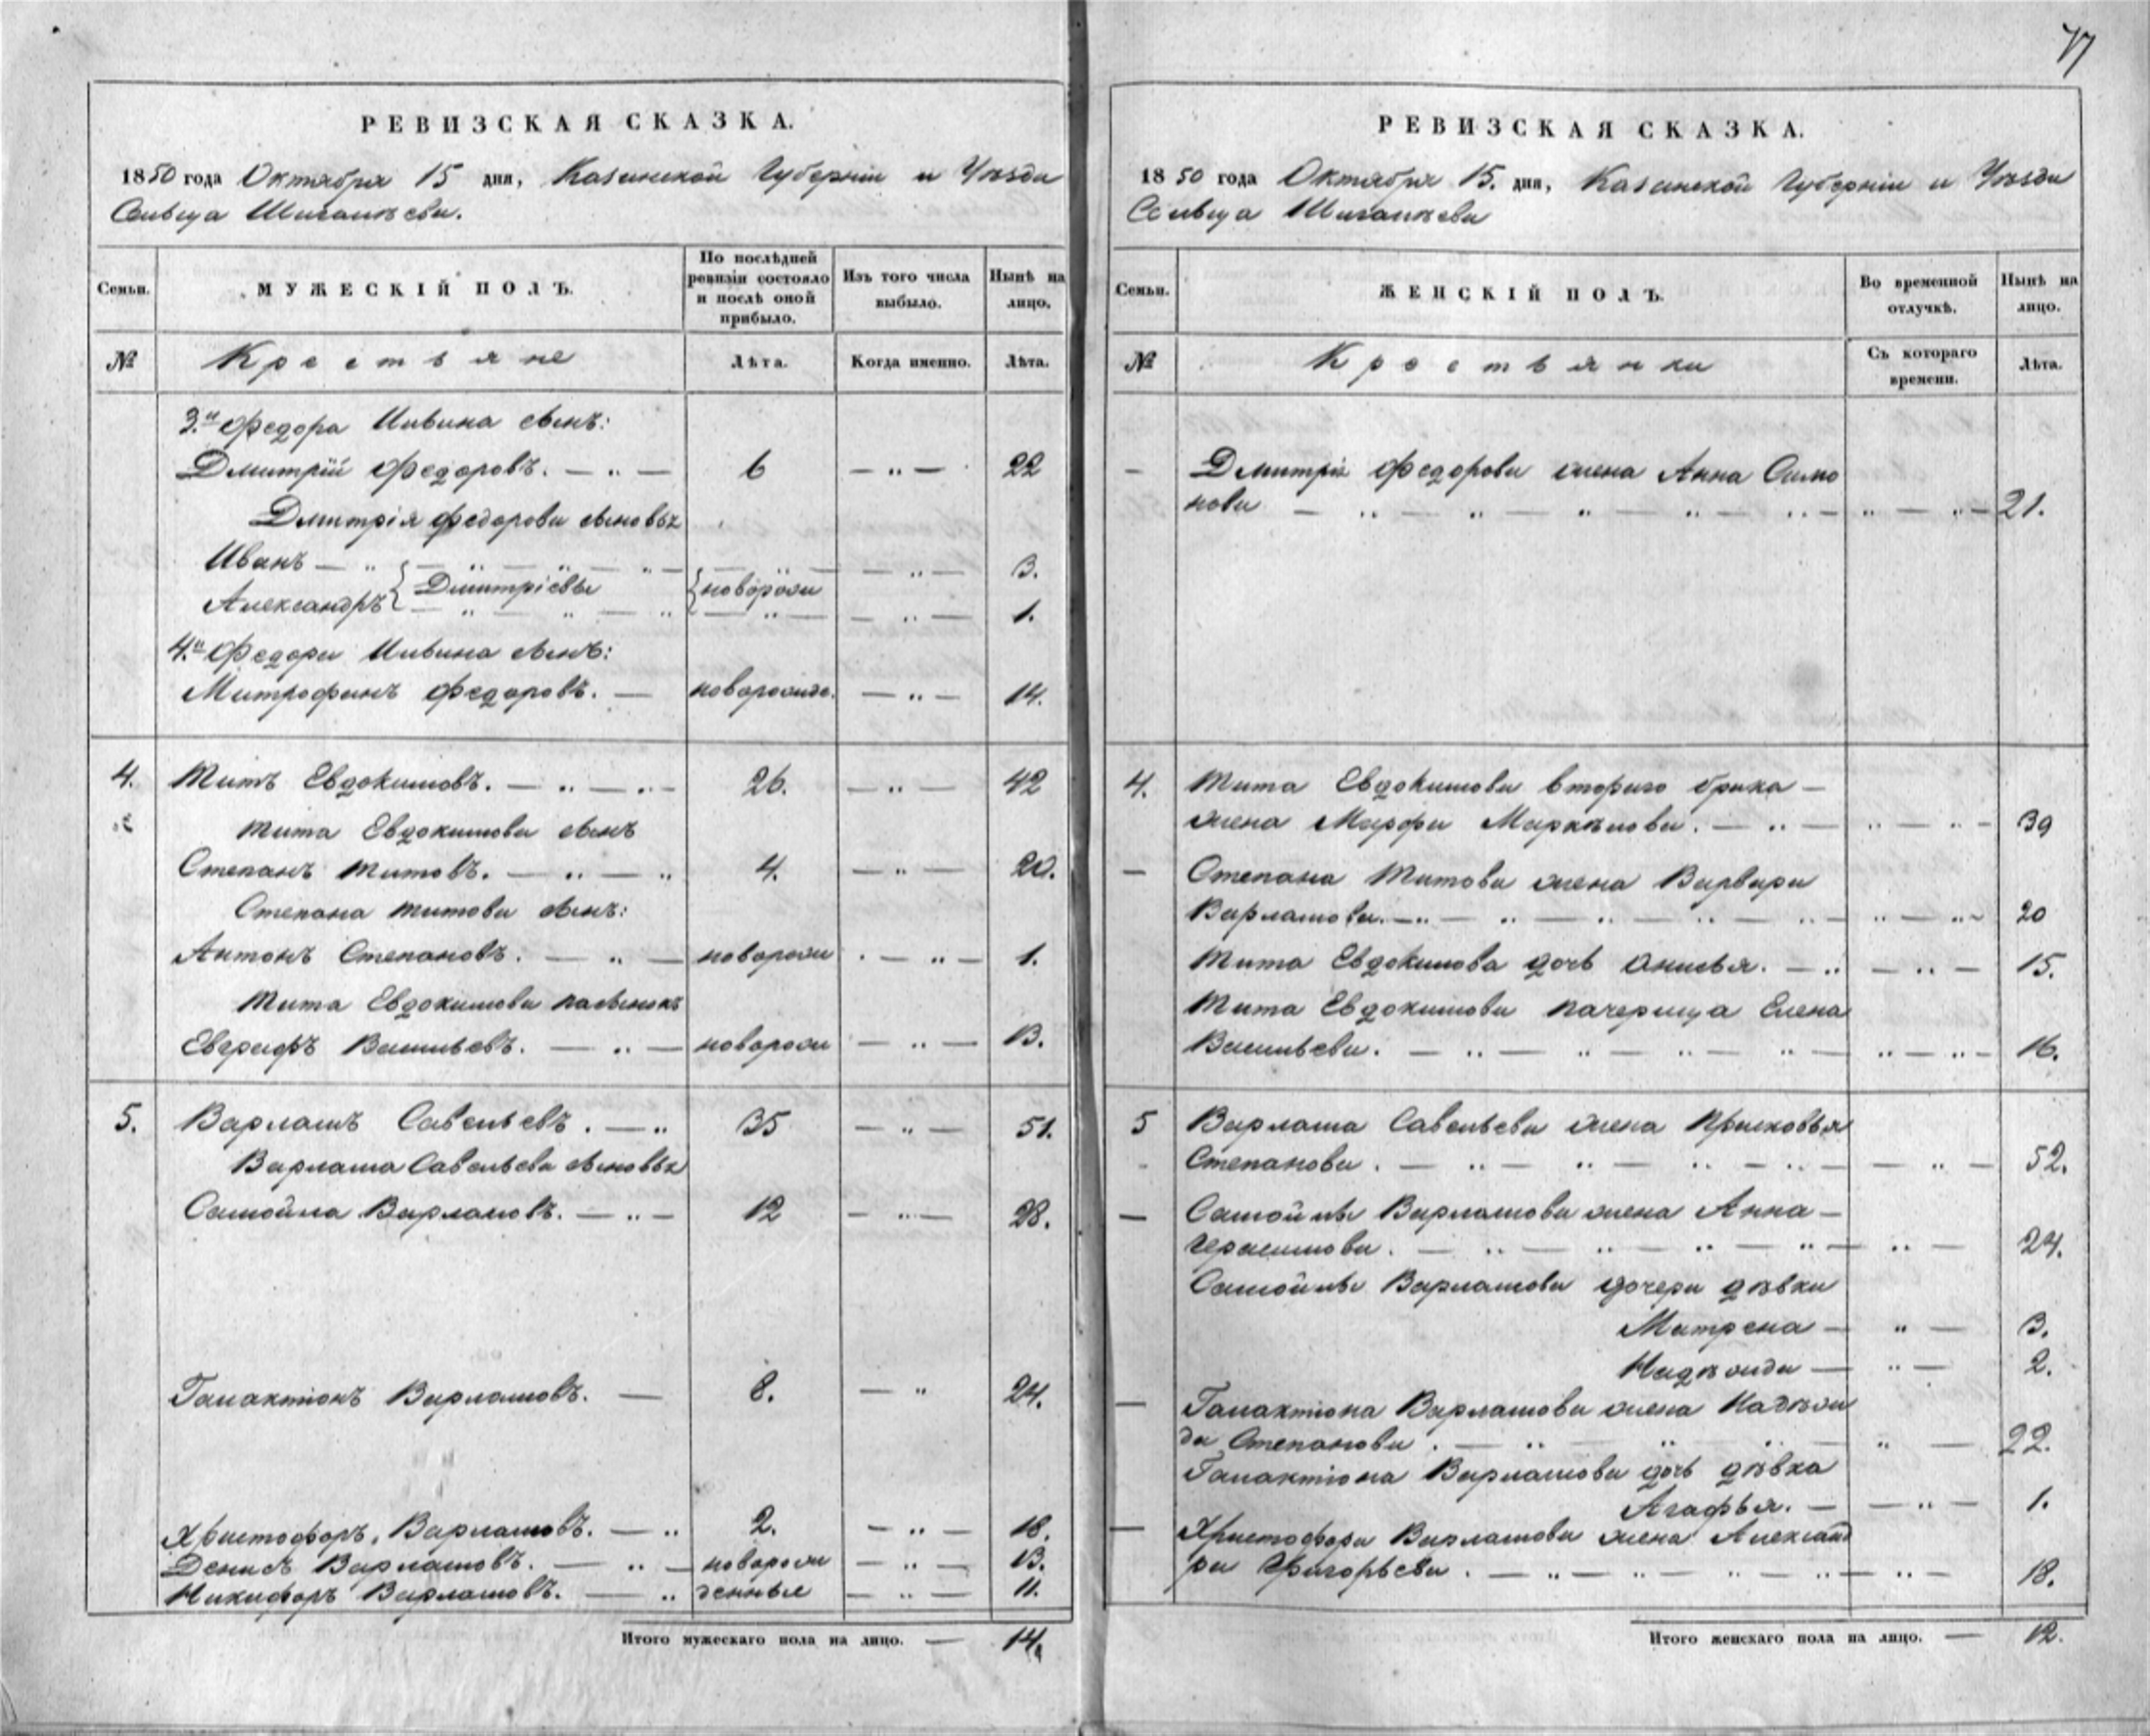 77
РЕВИЗСКАЯ СКАЗКА.
1850 года Октября 15 дня, Казанской Губерніи и Уѣзда
Сельца Шигалѣева.
Семьи. МУЖЕСКІЙ ПОЛЪ. По послѣдней ревизіи состояло и послѣ оной прибыло. Изъ того числа выбыло. Нынѣ на лицо.
№ Крестьяне Лѣта. Когда именно. Лѣта.
3.й Федора Ильина сынъ:
Дмитрій Федоровъ. — „ — 6 — „ — 22
Дмитрія Федорова сыновья
Иванъ — „ — „ — „ — „ — — „ — 3.
Дмитріевы новорожд
Александръ — „ — „ — „ — „ — — „ — 1.
4.й Федора Ильина сынъ:
Митрофанъ Федоровъ. — новорожде. — „ — 14.
4. Титъ Евдокимовъ. — „ — „ — 26. — „ — 42
Тита Евдокимова сынъ
Степанъ Титовъ. — „ — „ 4. — „ — 20.
Степана Титова сынъ:
Антонъ Степановъ. — „ — новорожд — „ — 1.
Тита Евдокимова пасынокъ
Евграфъ Васильевъ. — „ — новорожд — „ — 13.
5. Варламъ Савельевъ. — „ 35 — „ — 51.
Варлама Савельева сыновья
Самойла Варламовъ. — „ — 12 — „ — 28.
Галактіонъ Варламовъ. — 8. — „ 24.
Христофоръ Варламовъ. — „ 2. — „ — 18.
Денисъ Варламовъ. — „ — новорож — „ — 13.
Никифоръ Варламовъ. — „ денные — „ — 11.
Итого мужескаго пола на лицо. — 14.
РЕВИЗСКАЯ СКАЗКА.
1850 года Октября 15. дня, Казанской Губерніи и Уѣзда
Сельца Шигалѣева
Семьи. ЖЕНСКІЙ ПОЛЪ. Во временной отлучкѣ. Нынѣ на лицо.
№ Крестьянки Съ котораго времени. Лѣта.
— Дмитрія Федорова жена Анна Симо
нова — „ — „ — „ — „ — „ — „ — „ — 21.
4. Тита Евдокимова втораго брака —
жена Марфа Маркѣлова. — „ — „ — „ — 39
— Степана Титова жена Варвара
Варламова. — „ — „ — „ — „ — „ — „ — „ — 20
Тита Евдокимова дочь Анисья. — „ — „ — 15.
Тита Евдокимова пачерица Елена
Васильева. — „ — „ — „ — „ — „ — „ — 16.
5 Варлама Савельева жена Прасковья
Степанова. — „ — „ — „ — „ — — „ — 52.
— Самойлы Варламова жена Анна —
Герасимова. — „ — „ — „ — „ — „ — 24.
Самойлы Варламова дочери дѣвки
Матрена — „ — 3.
Надѣжда — „ — 2.
— Галактіона Варламова жена Надѣж
да Степанова. — „ — „ — „ — „ — 22.
Галактіона Варламова дочь дѣвка
Агафья. — — „ — 1.
— Христофора Варламова жена Александ
ра Григорьева. — „ — „ — „ — „ — „ — 18.
Итого женскаго пола на лицо. — 12.